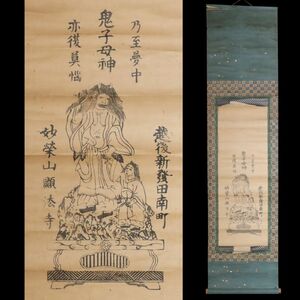 乃至夢中
鬼子母神
亦復莫惱
越後新發田南町
妙榮山顕法寺